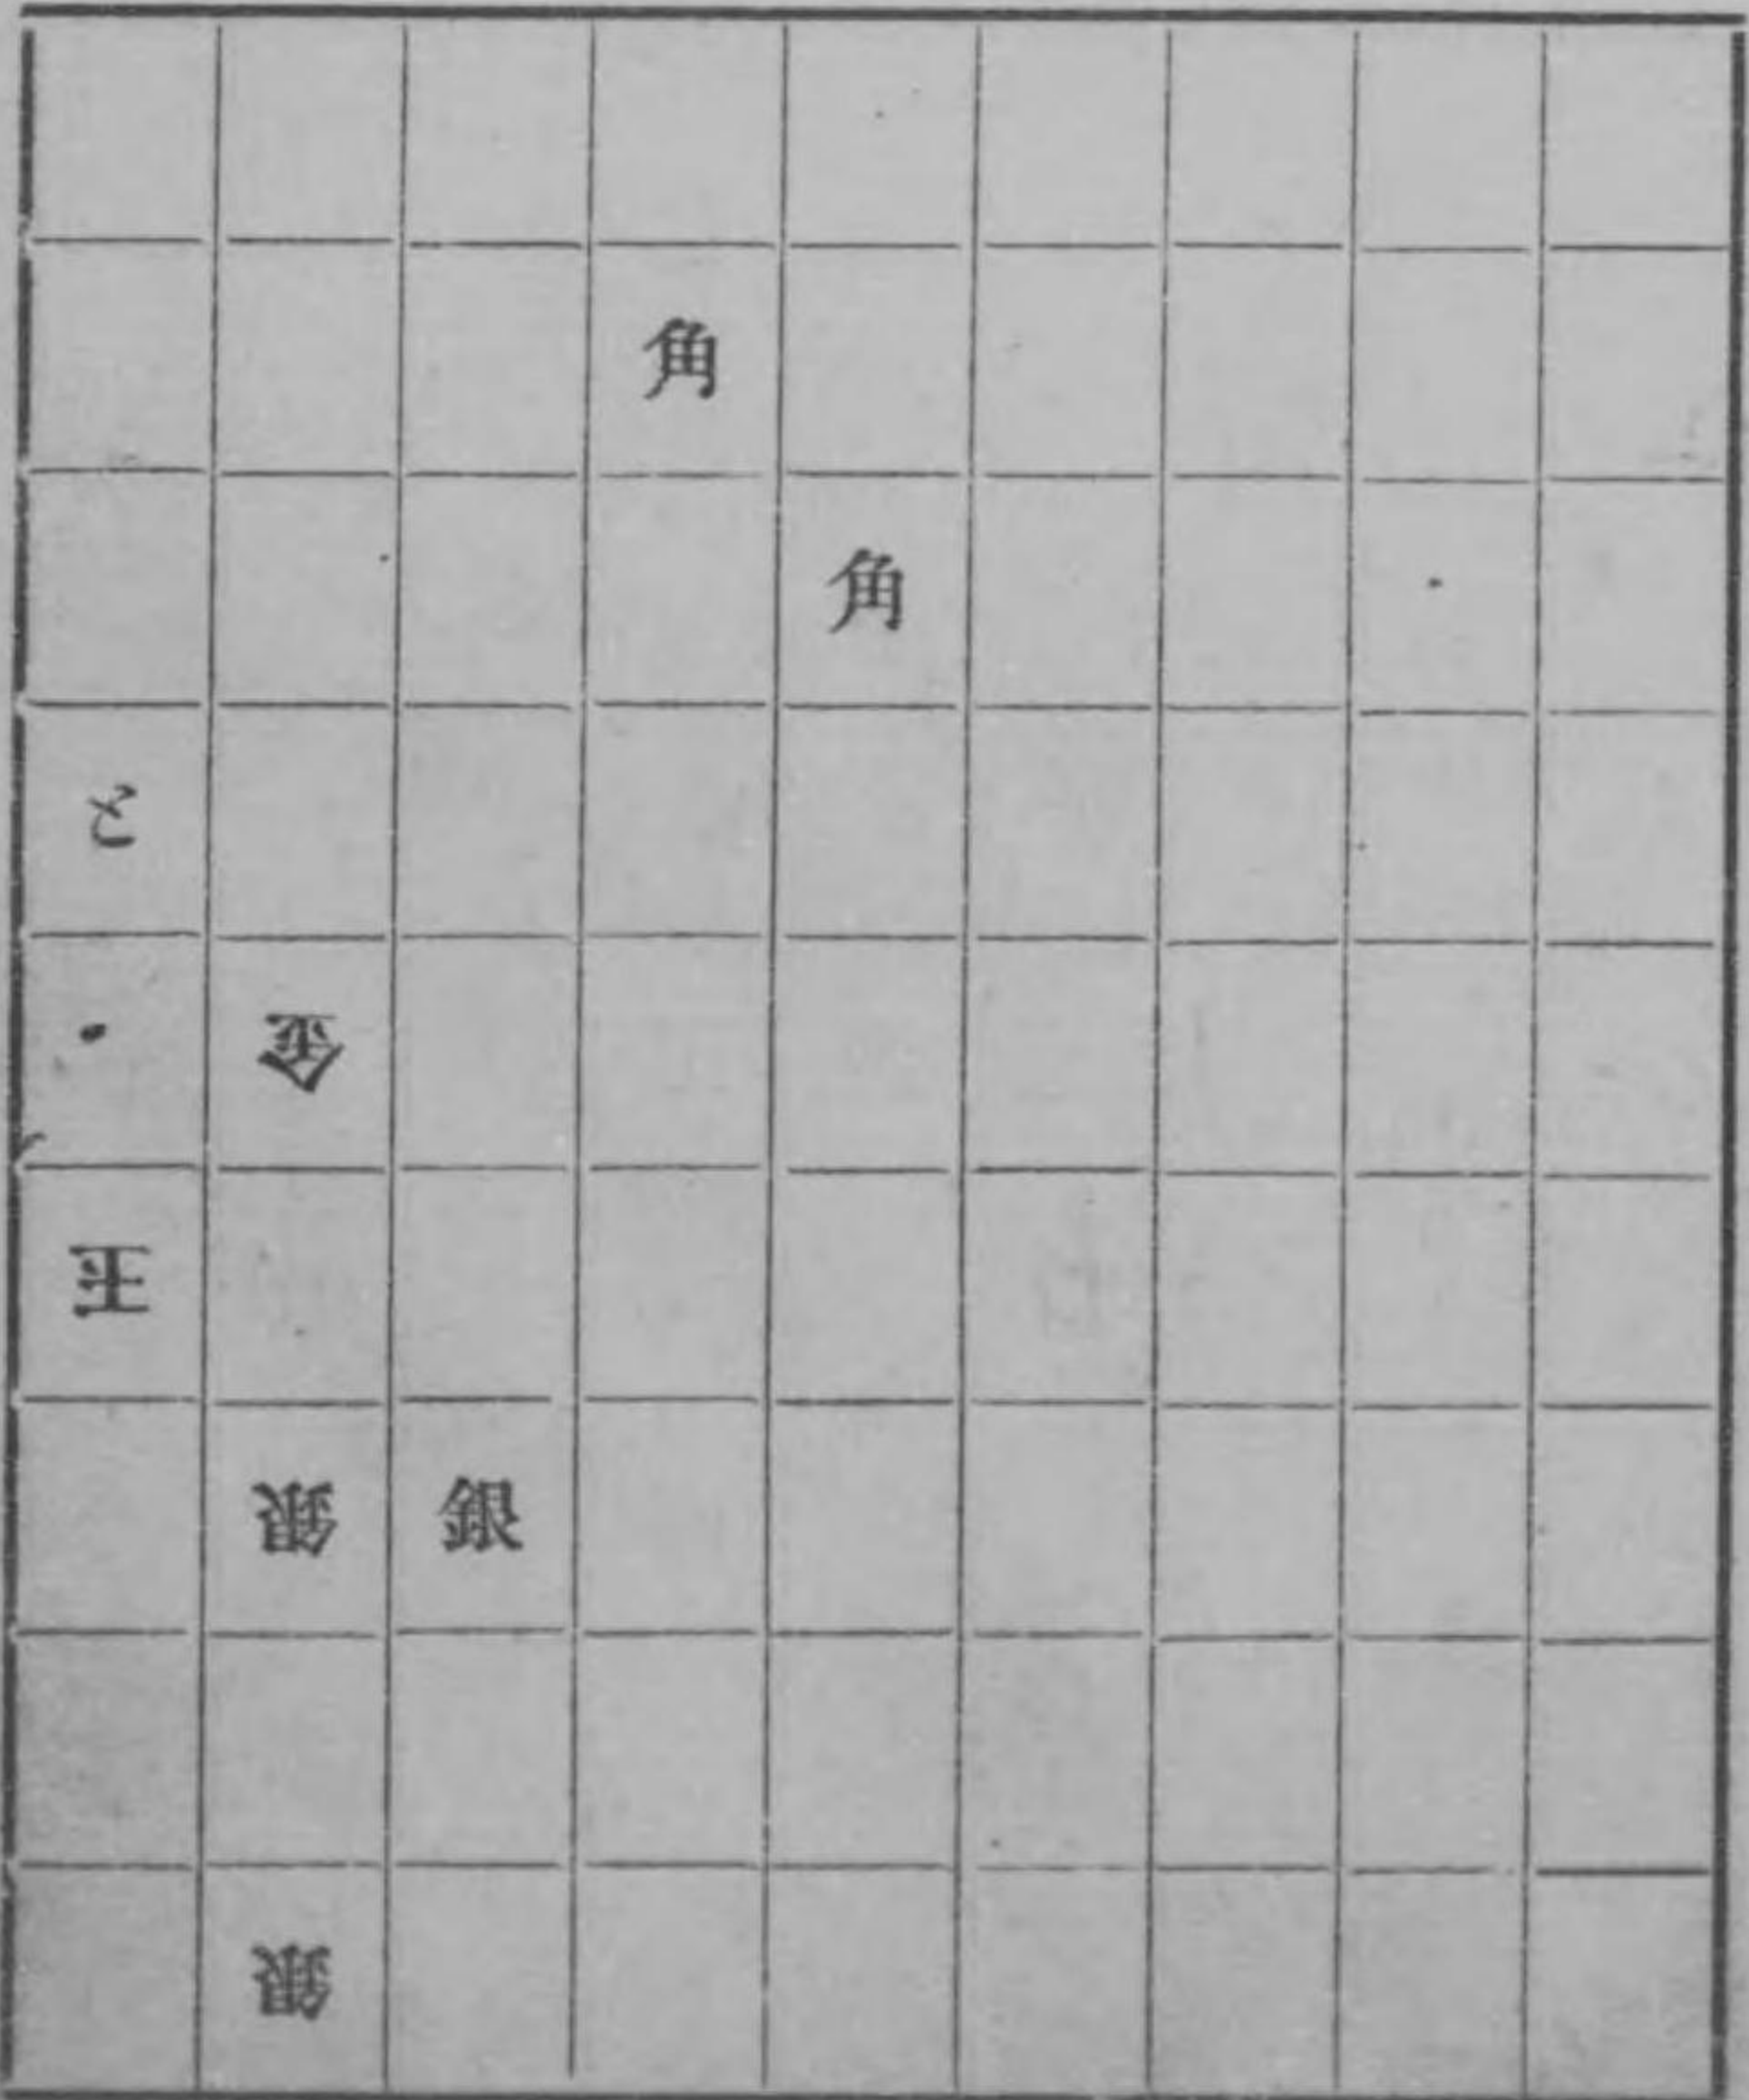 角
角
と
金
玉
銀 銀
銀